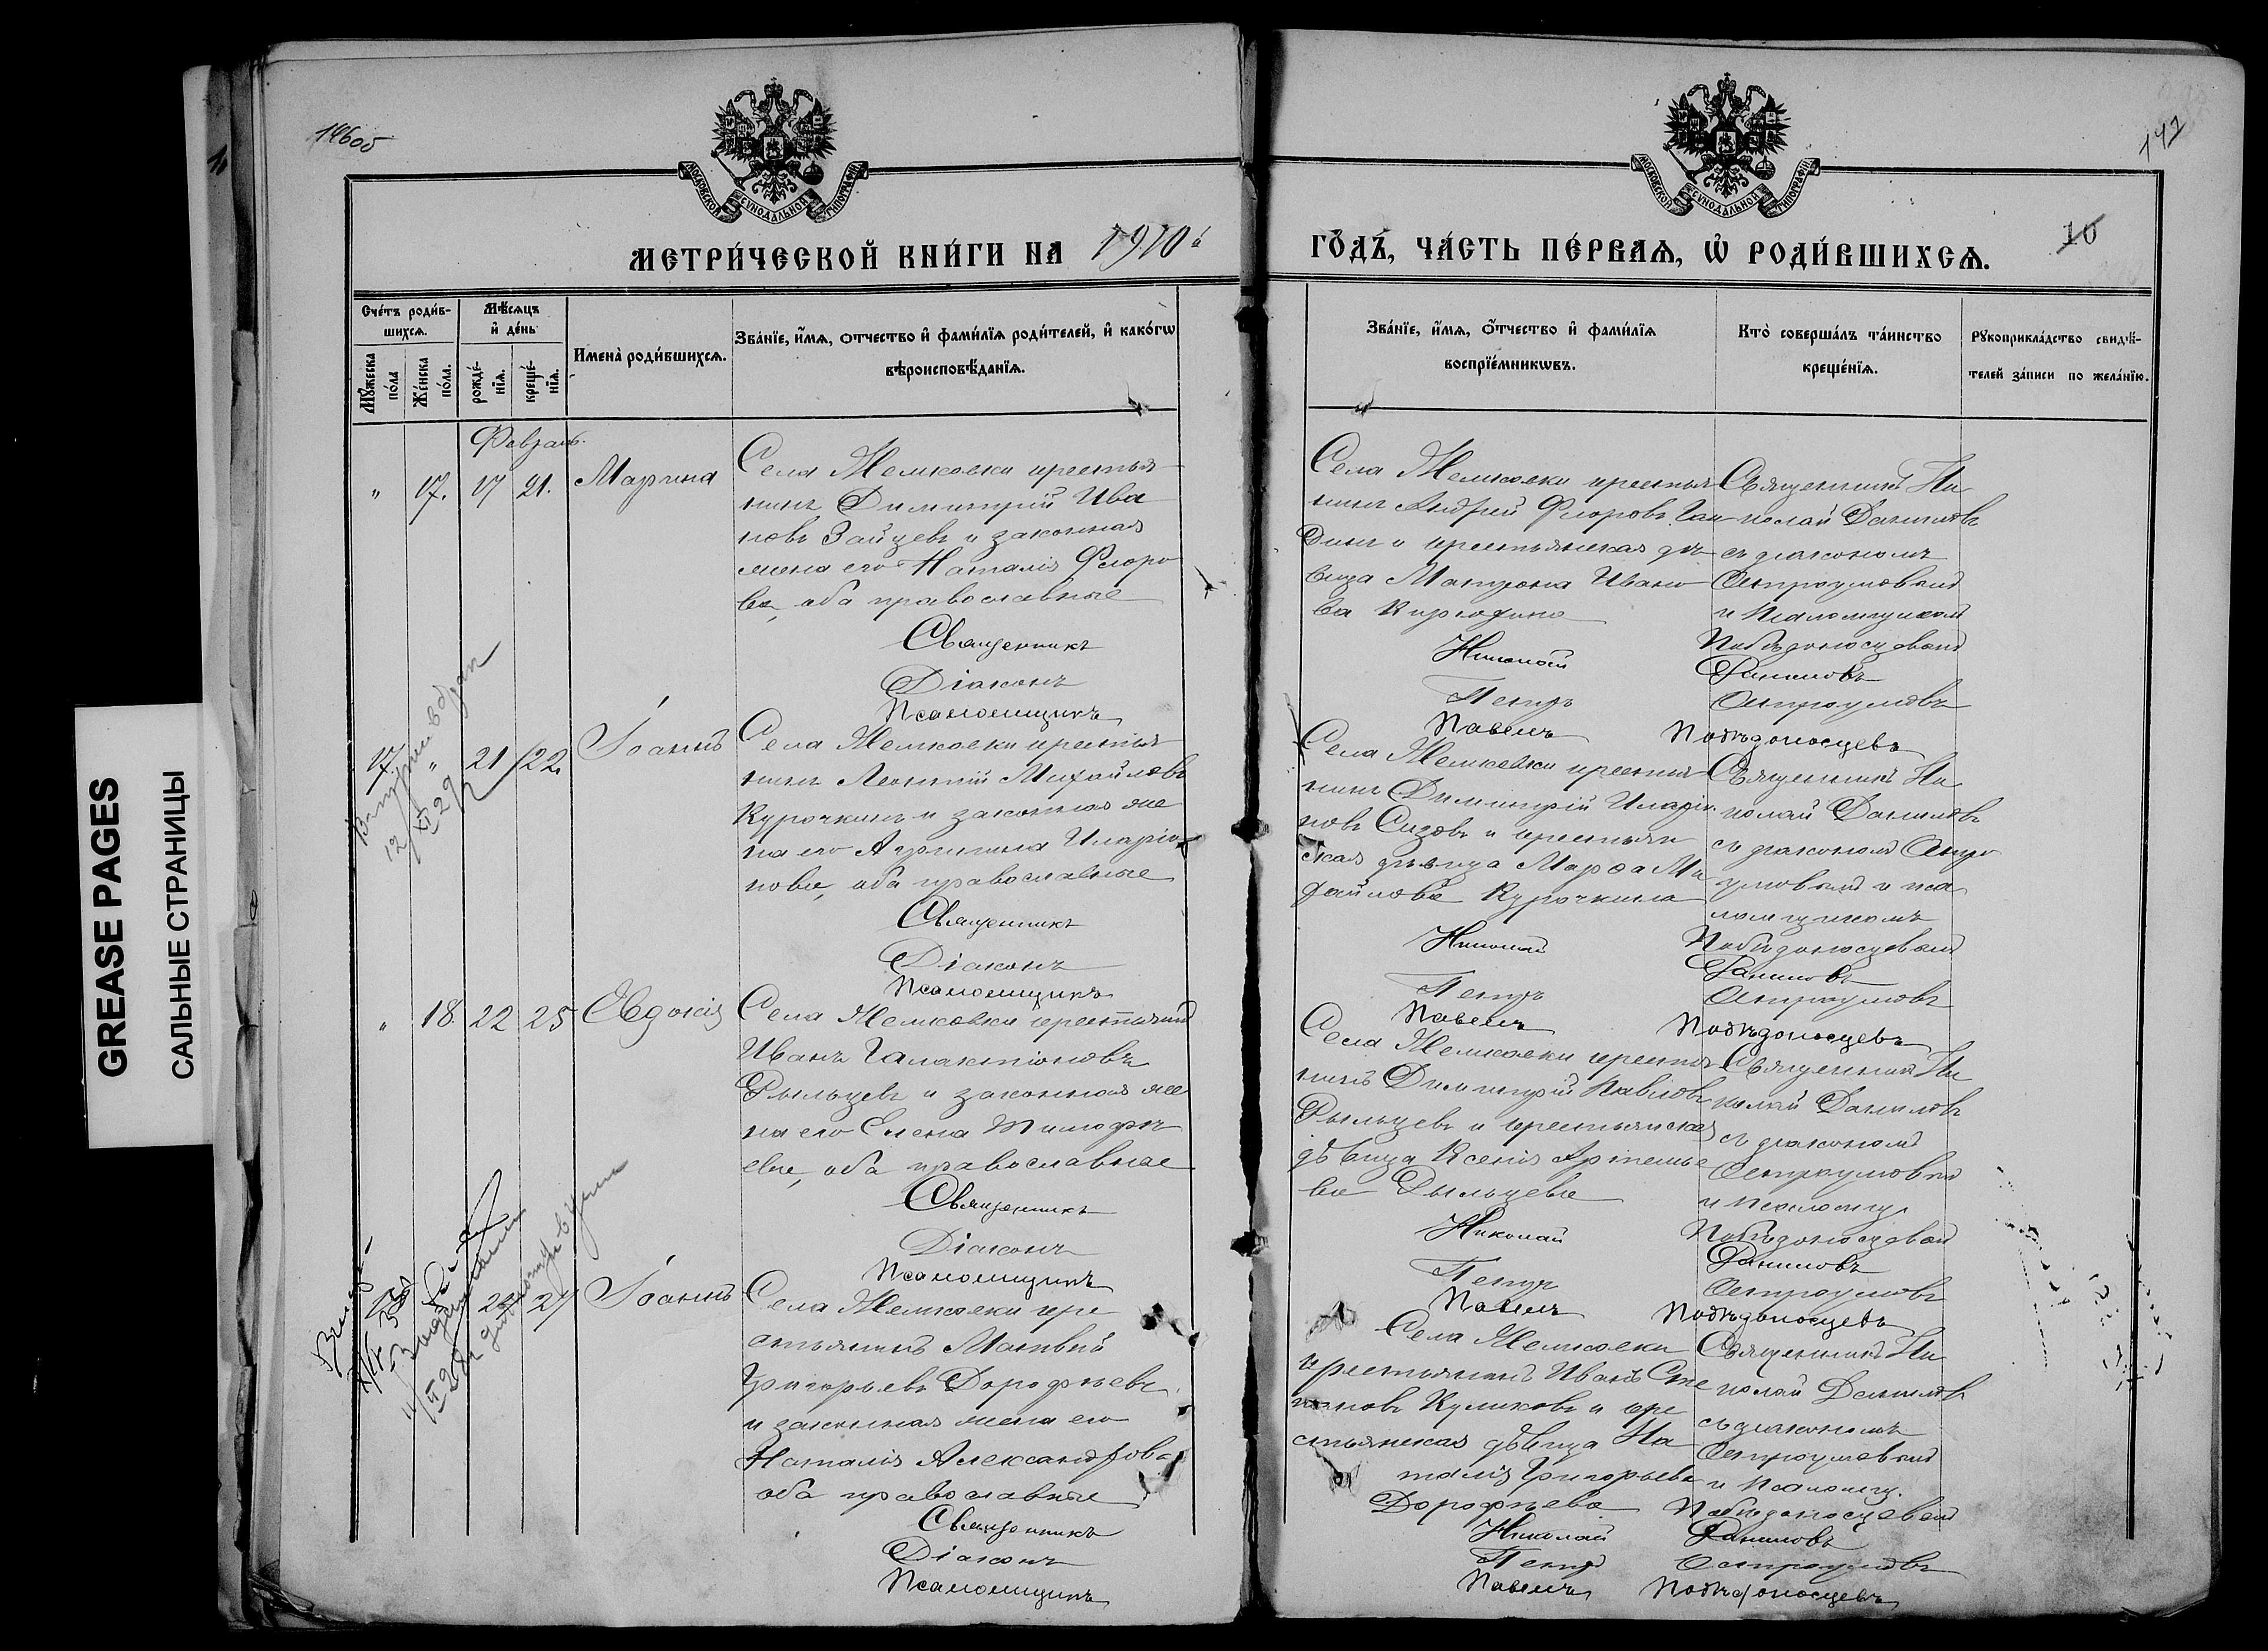 146об
147
МОСКОВСКОЙ СѴНОДАЛЬНОЙ ТИПОГРАФІИ
МОСКОВСКОЙ СѴНОДАЛЬНОЙ ТИПОГРАФІИ
МЕТРИ́ЧЕСКОЙ КНИ́ГИ НА 1910й
ГО́ДЪ, ЧА́СТЬ ПЕ́РВАѦ, Ѡ РОДИ́ВШИХСѦ.
10
Сче́тъ роди́в-
шихсѧ.
Мꙋ́жеска
по́ла
Же́нска
по́ла.
Мѣ́сѧцъ
и҆ де́нь
рожде́-
нїѧ.
креще́-
нїѧ.
Имена̀ роди́вшихсѧ.
Зва́нїе, и҆́мѧ, отчество и҆ фами́лїѧ роди́телей, и҆ како́гѡ
вѣроисповѣ́данїѧ.
Зва́нїе, и҆́мѧ, ѻ҆́тчество и҆ фами́лїѧ
воспрїе́мникѡвъ.
Кто̀ соверша́лъ та́инство
креще́нїѧ.
Рꙋкоприкла́дство свидѣ́-
телей за́писи по жела́нїю.
Февраль.
" 17. 17 21. Марина
Села Жемковки крестья
нинъ Димитрій Ива
новъ Зайцевъ и законная
жена его Наталія Флоро
ва, оба православные
Священникъ
Діаконъ
Псаломщикъ
Села Жемковки крестья
нинъ Андрей Флоровъ
динъ и крестьянская дѣ
вица Матрона Ивано
ва
Николай
Петръ
Павелъ
Священникъ Ни
колай Даниловъ
съ діакономъ
Остроумовымъ
и псаломщикомъ
Побѣдоносцевымъ
Даниловъ
Остроумовъ
Побѣдоносцевъ
17. " 21 22. Іоаннъ
12/XI 29
Села Жемковки крестья
нинъ Леонтій Михайловъ
Курочкинъ и законная же
на его Агрипина Иларіо
нова, оба православные
Священникъ
Діаконъ
Псаломщикъ
Села Жемковки крестья
нинъ Димитрій Иларіо
новъ Сизовъ и крестьян
ская дѣвица Марѳа Ми
хайлова Курочкина
Николай
Петръ
Павелъ
Священникъ Ни
колай Даниловъ
съ діакономъ Остро
умовымъ и пса
ломщикомъ
Побѣдоносцевымъ
Даниловъ
Остроумовъ
Побѣдоносцевъ
" 18. 22 25 Евдокія
Села Жемковки крестьянинъ
Иванъ Галактіоновъ
Рыльцевъ и законная же
на его Елена Тимофѣ
ева, оба православные
Священникъ
Діаконъ
Псаломщикъ
Села Жемковки крестья
нинъ Димитрій Павловъ
Рыльцевъ и крестьянская
дѣвица Ксенія Артемье
ва Рыльцева
Николай
Петръ
Павелъ
Священникъ Ни
колай Даниловъ
съ діакономъ
Остроумовымъ
и псаломщ.
Побѣдоносцевымъ
Даниловъ
Остроумовъ
Побѣдоносцевъ
Іоаннъ
Села Жемковки кре
стьянинъ Матвѣй
Григорьевъ Дорофѣевъ
и законная жена его
Наталія Александрова
оба православные
Священникъ
Діаконъ
Псаломщикъ
Села Жемковки
крестьянинъ Иванъ Сте
пановъ Куликовъ и кре
стьянская дѣвица На
талія Григорьева
Дорофѣева
Николай
Петръ
Павелъ
Священникъ Ни
колай Даниловъ
съ діакономъ
Остроумовымъ
и псаломщ.
Побѣдоносцевымъ
Даниловъ
Остроумовъ
Побѣдоносцевъ
GREASE PAGES
САЛЬНЫЕ СТРАНИЦЫ